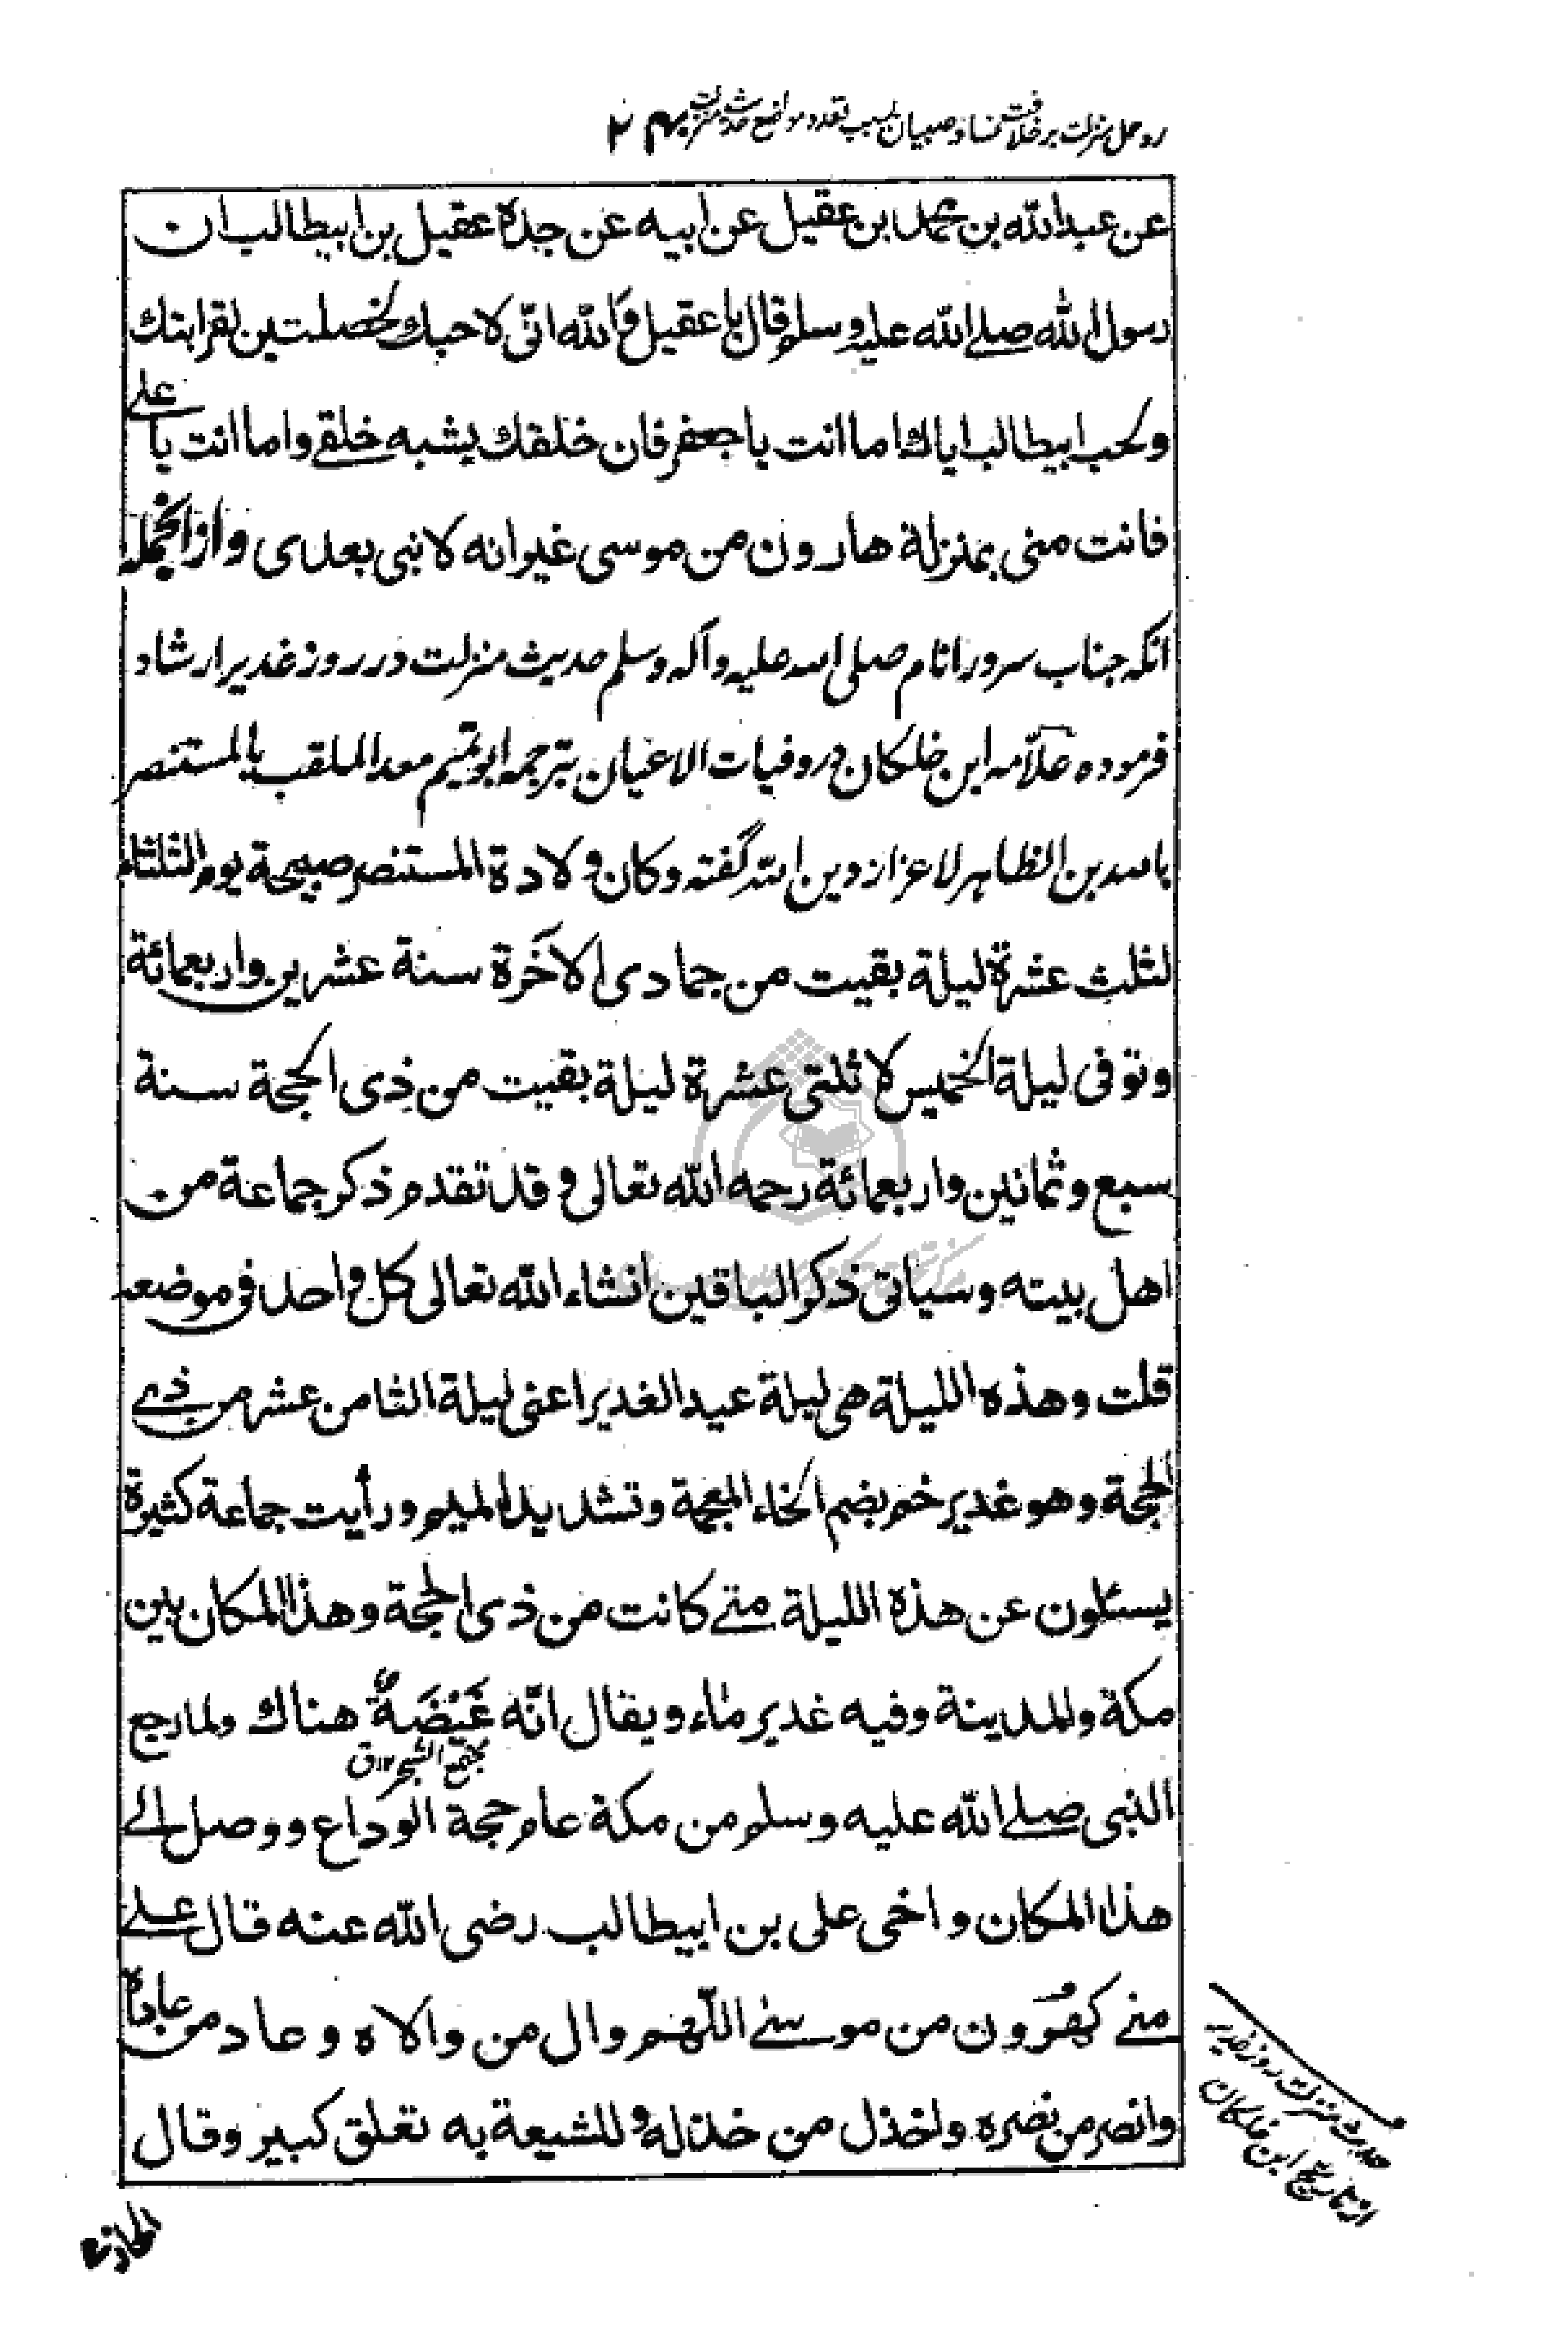 رد حمل منزلت بر خلافت نساء و صبیان بسبب تعدد مواضع حدیث منزلت
عن عبدالله بن محمد ابن عقیل عن ابیه عن جدة عقیل بن ابیطالب ان
رسول الله صلے الله علیه وسلم قال یا عقیل وَالله انّی لاحبك لخصلتین لقرابتك
ولحب ابیطالب ایاك اما انت یا جعفر فان خلقك یشبه خلقے واما انت یا علے
فانت منی بمنزلة هارون من موسی غیر انه لا نبی بعدی وازانجمله
آنکه جناب سرور انام صلی الله علیه وآله وسلم حدیث منزلت در روز غدیر ارشاد
فرموده علّامه ابن خلکان در وفیات الاعیان بترجمه ابو تمیم معد الملقب بالمستنصر
بالله بن الظاهر لاعزاز دین الله گفته وکان ولادة المستنصر صبیحة یوم الثلثاء
لثلث عشرة لیلة بقیت من جمادی الاخَرة سنة عشرین واربعمائة
وتوفی لیلة الخمیس لاثلتی عشرة لیلة بقیت من ذِی الحجة سنة
سبع وثمانین واربعمائة رحمه الله تعالی وقد تقدم ذکر جماعة من
اهل بیته وسیاتی ذکر الباقین انشاء الله تعالی کل واحد فی موضعه
قلت وهذه اللیلة هی لیلة عید الغدیر اعنی لیلة الثامن عشر من ذی
الحجة وهو غدیر خم بضم الخاء المعجمة وتشدید المیم ورأیت جماعة کثیرة
یسئلون عن هذه اللیلة متے کانت من ذی الحجة وهذا المکان بین
مکة والمدینة وفیه غدیر ماء ویقال انّه غَیْضَةٌ هناك ولما رجع
مجتمع الشجر ١٢ ق
النبی صلے الله علیه وسلم من مکة عام حجة الوداع ووصل الے
هذا المکان واخی علی بن ابیطالب رضی الله عنه قال علے
منے کهٰرون من موسےٰ اللّهم وال من والاه وعاد من عاداه
وانصر من نصره واخذل من خذله وللشیعة به تعلق کبیر وقال
حدیث منزلت روز غدیر
از تاریخ ابن خلکان
الحازمے